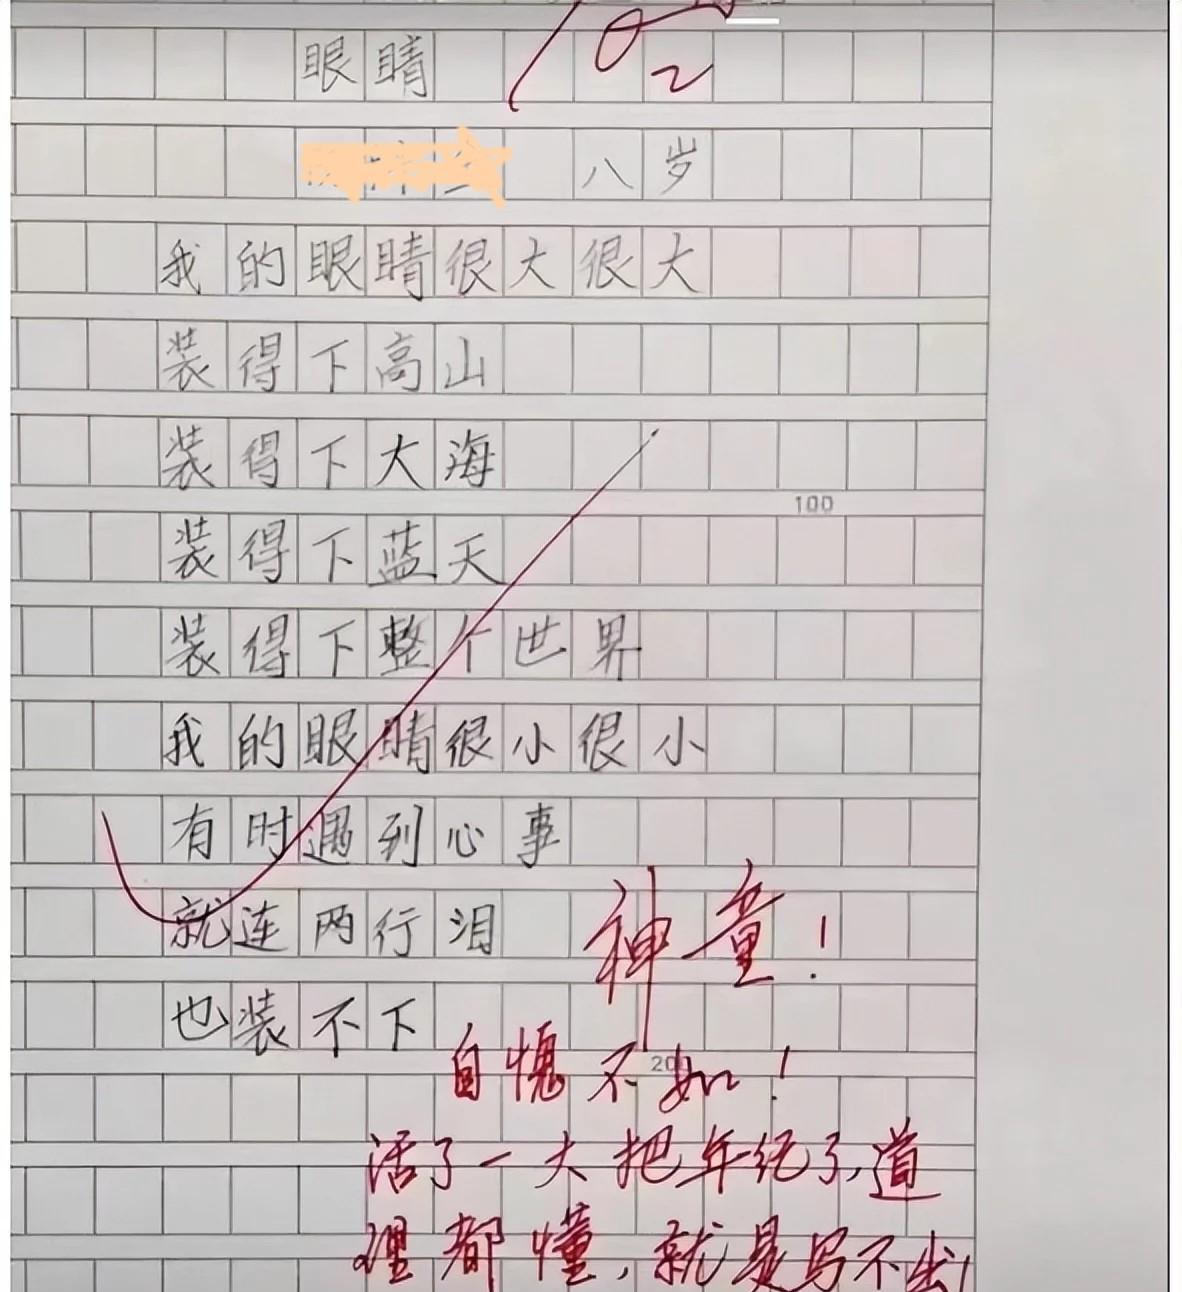 眼睛
八岁
我的眼睛很大很大
装得下高山
装得下大海
100
装得下蓝天
装得下整个世界
我的眼睛很小很小
有时遇到心事
就连两行泪
神童!
也装不下
自愧不如!
200
活了一大把年纪了,道
理都懂,就是写不出!